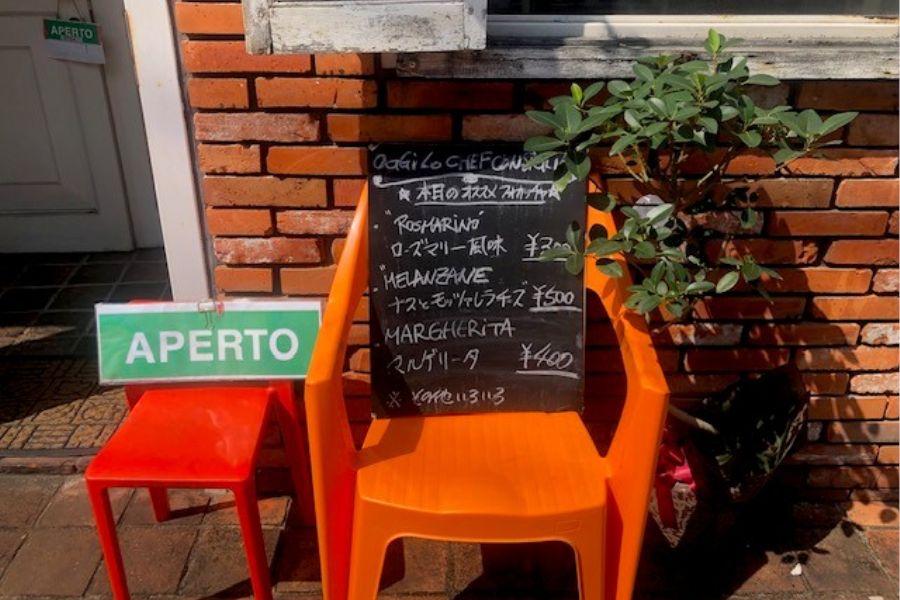 APERTO
OGGI LO CHEF CONSIGLIA
★本日のオススメフォカッチャ★
"ROSMARINO"
ローズマリー風味 ¥300
"MELANZANE
ナスとモッツァレラチーズ ¥500
MARGHERITA
マルゲリータ ¥400
※ その他いろいろ
APERTO